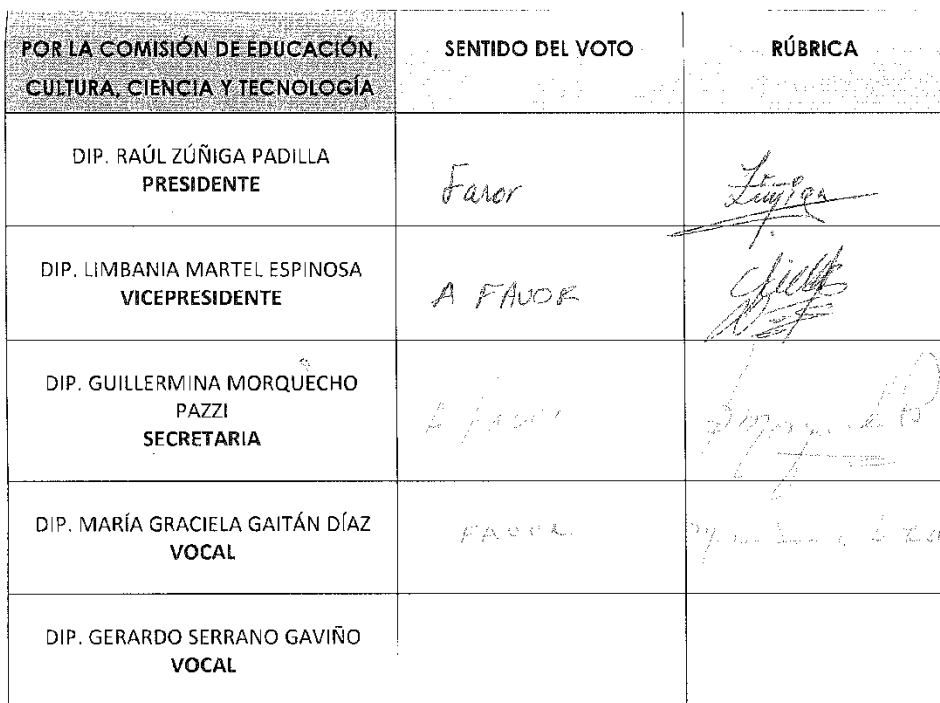 POR LA COMISIÓN DE EDUCACIÓN, SENTIDO DEL VOTO RÚBRICA
CULTURA, CIENCIA Y TECNOLOGÍA
DIP. RAÚL ZÚÑIGA PADILLA
PRESIDENTE
Favor
Zuñiga
DIP. LIMBANIA MARTEL ESPINOSA
VICEPRESIDENTE
A FAVOR
DIP. GUILLERMINA MORQUECHO
PAZZI
SECRETARIA
A favor
DIP. MARÍA GRACIELA GAITÁN DÍAZ
VOCAL
FAVOR
DIP. GERARDO SERRANO GAVIÑO
VOCAL